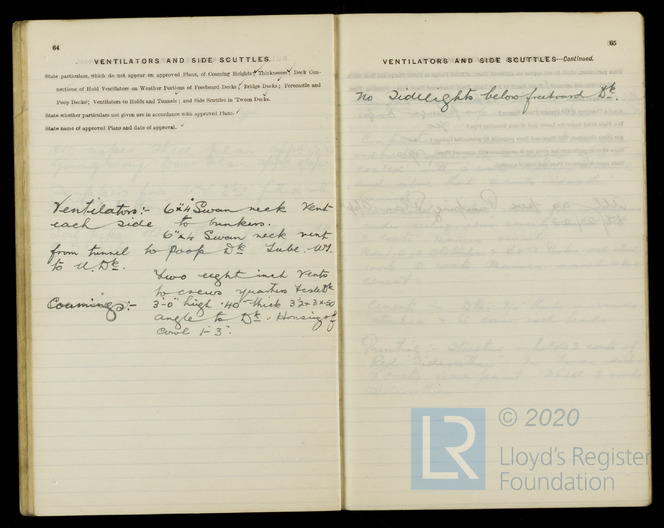 64
VENTILATORS AND SIDE SCUTTLES.
State particulars, which do not appear on approved Plans, of Coaming Heights, Thicknesses, Deck Con-
nections of Hold Ventilators on Weather Portions of Freeboard Decks, Bridge Decks, Forecastle and
Poop Decks; Ventilators to Holds and Tunnels; and Side Scuttles in 'Tween Decks.
State whether particulars not given are in accordance with approved Plans.
State name of approved Plans and date of approval.
Ventilators:- 6"x4" Swan neck Vent
each side to bunkers.
6"x4 Swan neck vent
from tunnel to Poop Dk
to U. Dk.
Two eight inch Vents
to crews quarters
Coamings:- 3'-0" high .40" thick
angle to Dk. Housing of
Cowl 1-3".
65
VENTILATORS AND SIDE SCUTTLES—Continued.
No Sidelights below freeboard Dk.
© 2020
LR
Lloyd's Register
Foundation